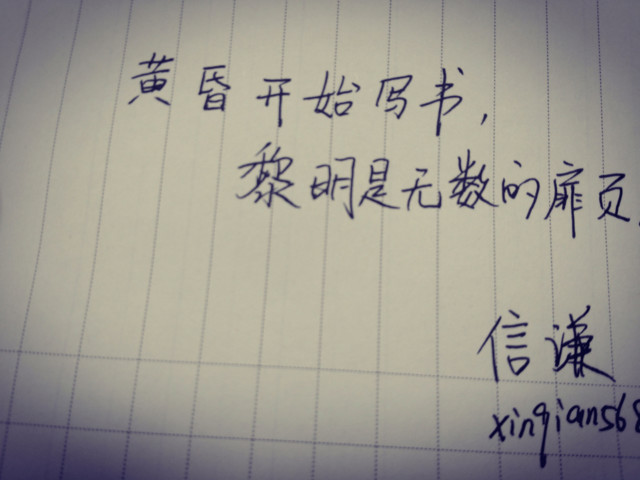 黄昏开始写书,
黎明是无数的扉页.
信谦
xinqian568